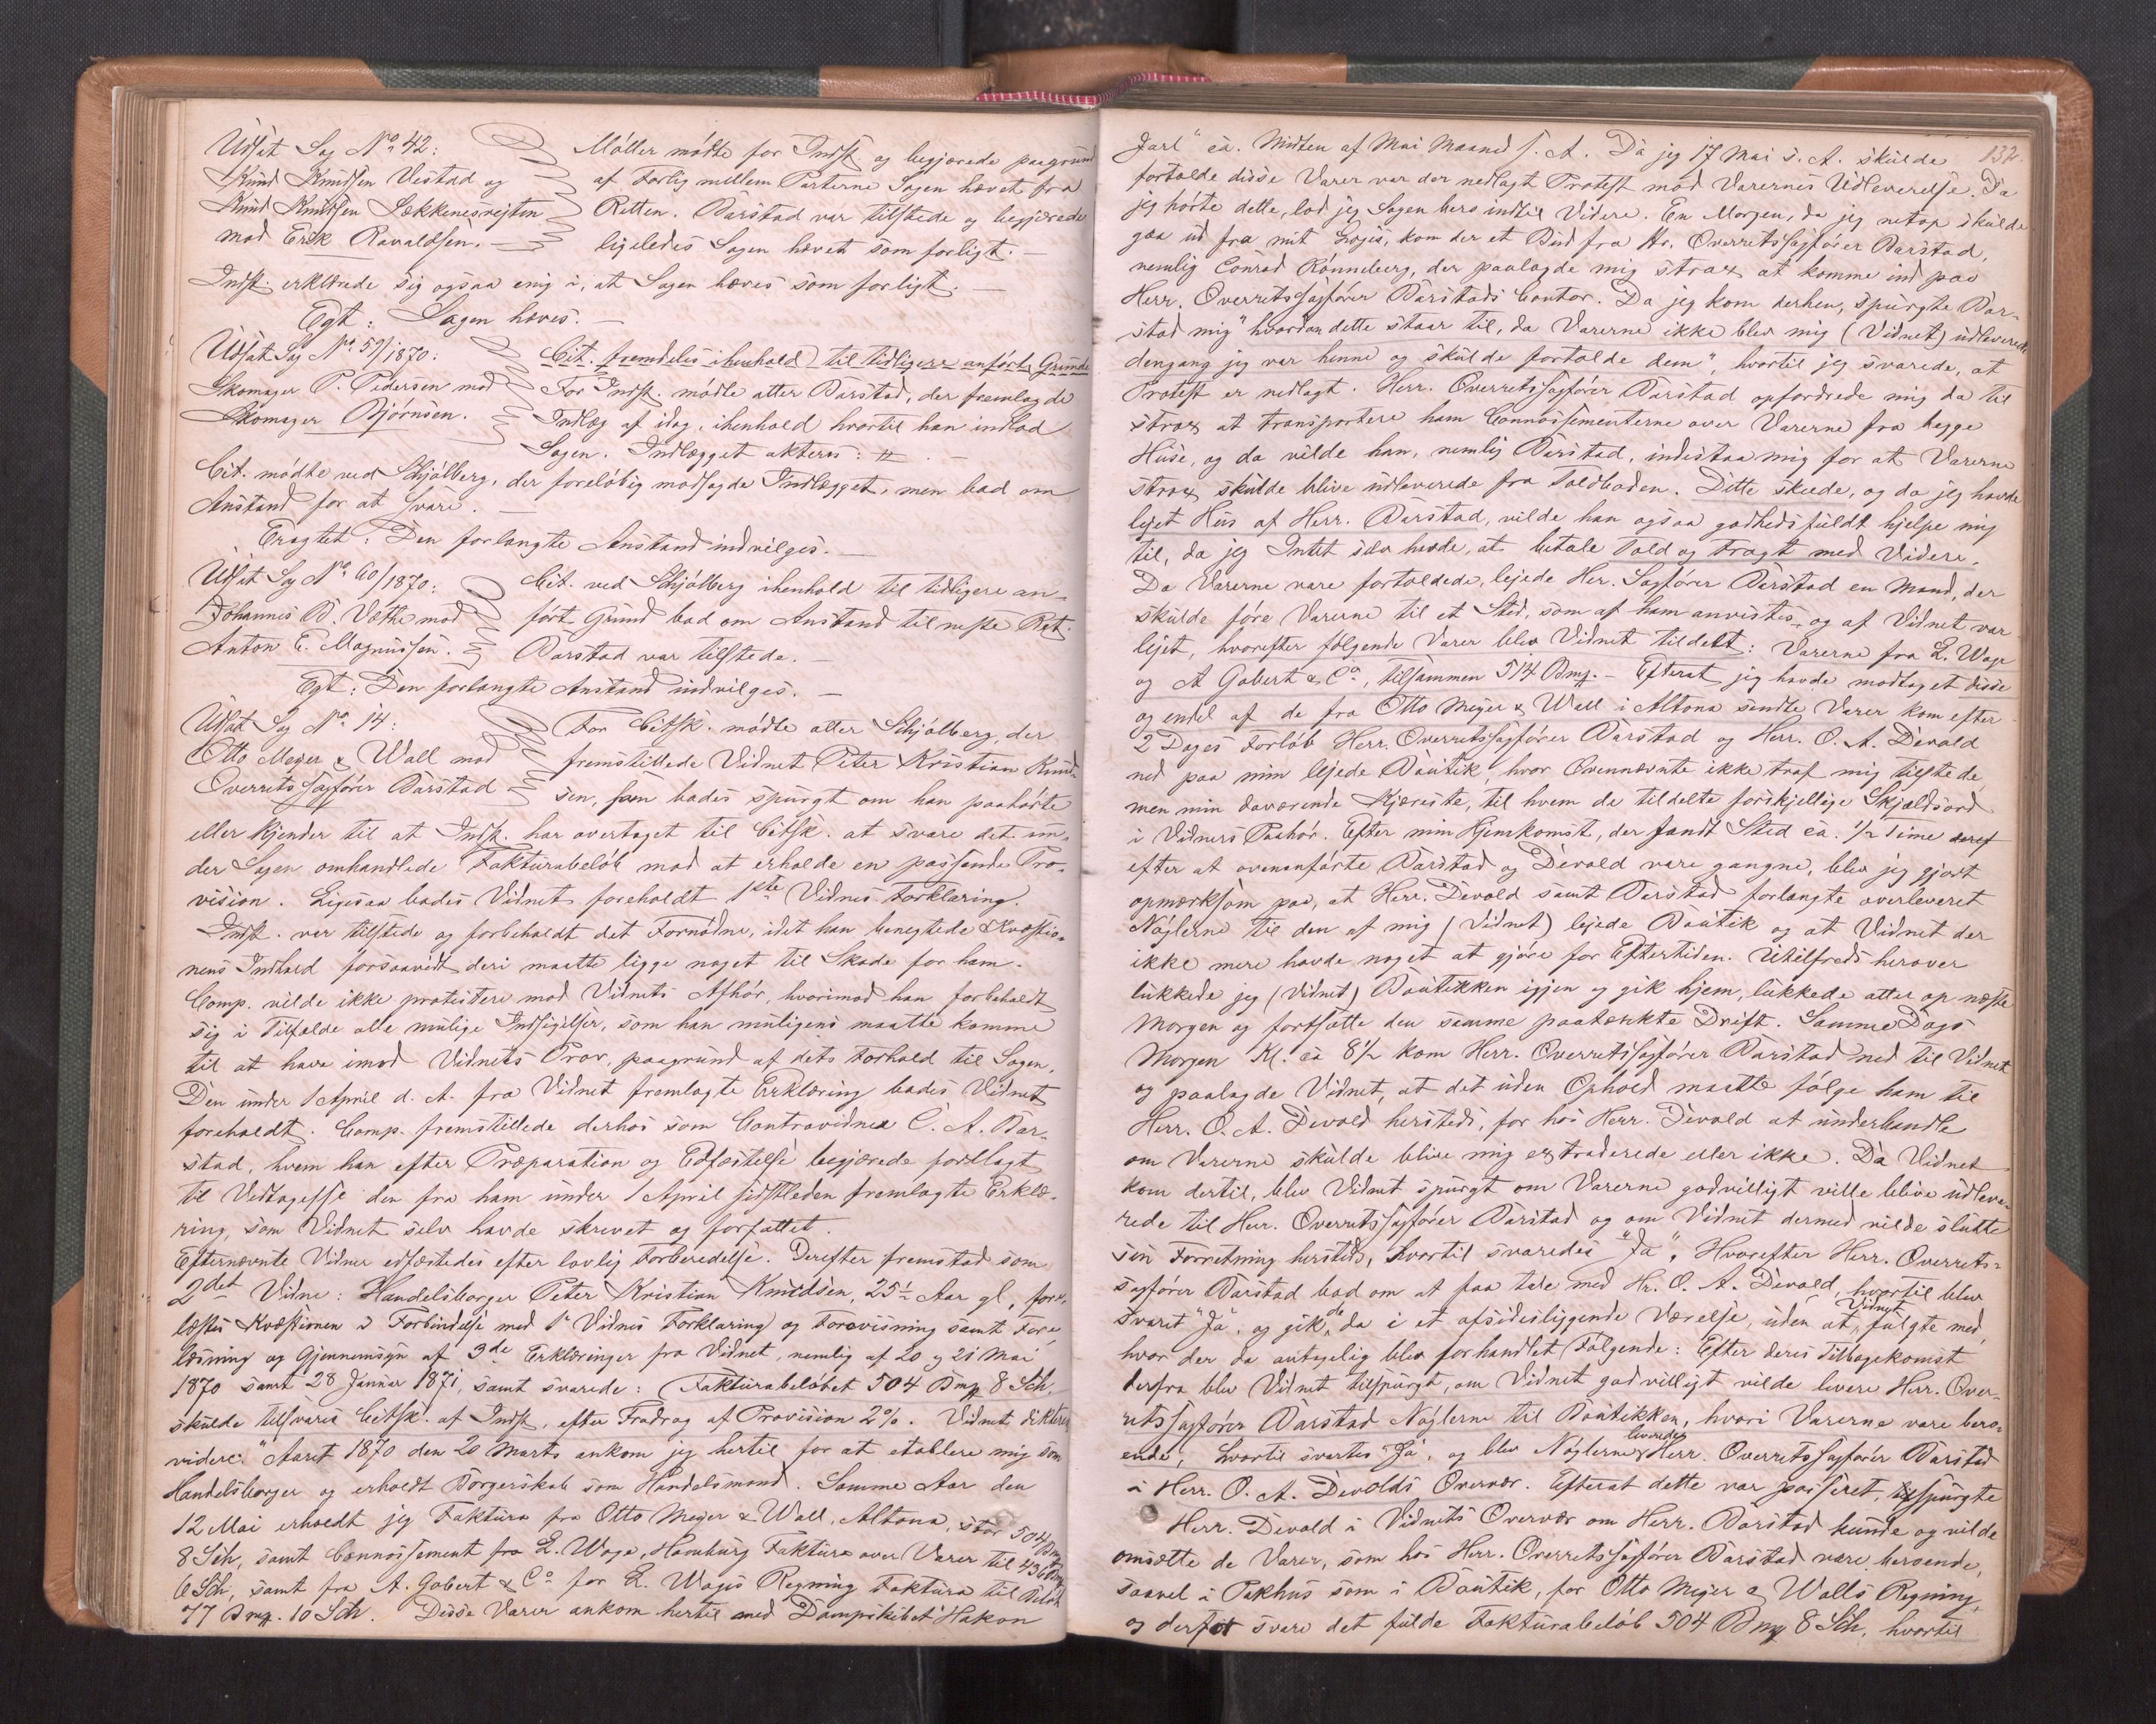 Udsat Sag No 42:
Knud Knudsen Vestad og
Knud Knudsen Sækkenesrejten
mod Erik Ravaldsen. —
Møller mødte for Indst. og begjærede paagrund
af Forlig mellem Parterne Sagen hævet fra
Retten. Barstad var tilstede og begjærede
ligeledes Sagen hævet som forligt. —
Indst. erklærede sig ogsaa enig i, at Sagen hæves som forligt. —
Egt: Sagen hæves. —
Udsat Sag No 59/1870:
Skomager P. Pedersen mod
Skomager Bjørnsen.
Cit. fremdeles ihenhold til tidligere anførte Grunde
For Indst. mødte atter Barstad, der fremlagde
Indlæg af idag, ihenhold hvortil han indlod
Sagen. Indlægget akteres: #
Cit. mødte ved Schjølberg, der foreløbig modsagde Indlægget, men bad om
Anstand for at svare. —
Eragtet: Den forlangte Anstand indvilges. —
Udsat Sag No 60/1870:
Johannes B. Væthe mod
Anton E. Magnussen.
Cit. ved Schjølberg ihenhold til tidligere an-
ført Grund bad om Anstand til neste Ret.
Barstad var tilstede. —
Egt: Den forlangte Anstand indvilges. —
Udsat Sag No 14:
Otto Meyer & Wall mod
Overretssagfører Barstad
For Citsk. mødte atter Schjølberg, der
fremstillede Vidnet Peter Kristian Knud-
sen, som bades spurgt om han paahørte
eller kjender til at Indst. har overtaget til Citsk. at svare det un-
der Sagen omhandlede Fakturabeløb mod at erholde en passende Pro-
vision. Ligesaa bades Vidnet foreholdt 1ste Vidnes Forklaring.
Indst. var tilstede og forbeholdt det Fornødne, idet han benegtede Kvæstio-
nens Indhold forsaavidt deri maatte ligge noget til Skade for ham.
Comp. vilde ikke protestere mod Vidnets Afhør, hvorimod han forbeholdt
sig i Tilfælde alle mulige Indsigelser, som han muligens maatte komme
til at have imod Vidnets Prov, paagrund af dets Forhold til Sagen.
Den under 1 April d. A. fra Vidnet fremlagte Erklæring bades Vidnet
foreholdt. Comp. fremstillede derhos som Contravidne C. A. Bar-
stad, hvem han efter Præparation og Edfæstelse begjærede forelagt
til Vedtagelse den fra ham under 1 April sidstleden fremlagte Erklæ-
ring, som Vidnet selv havde skrevet og forfattet.
Efternævnte Vidner edfæstedes efter lovlig Forberedelse. Derefter fremstod som
2det Vidne: Handelsborger Peter Kristian Knudsen, 25½ Aar gl, fore-
læstes Kvæstionen i Forbindelse med 1ste Vidnes Forklaring og Forevisning samt Fore-
læsning og Gjennemsyn af 3de Erklæringer fra Vidnet, nemlig af 20 og 21 Mai
1870 samt 28 Januar 1871, samt svarede: Fakturabeløbet 504 Bmp 8 Sch.
skulde tilsvares Citsk. af Indst, efter Fradrag af Provision 2%. Vidnet dikterer
videre: "Aaret 1870 den 20 Marts ankom jeg hertil for at etablere mig som
Handelsborger og erholdt Borgerskab som Handelsmand. Samme Aar den
12 Mai erholdt jeg Faktura fra Otto Meyer & Wall, Altona, stor 504 Bmp
8 Sch, samt Connossement fra L. Wage, Hamburg Faktura over Varer til 436 Bmp
6 Sch, samt fra A. Gobert & Co for L. Wages Regning Faktura til Beløb
77 Bmp. 10 Sch. Disse Varer ankom hertil med Dampskibet "Hakon
132.
Jarl" ca. Midten af Mai Maaned s. A. Da jeg 17 Mai s. A. skulde
fortolde disse Varer var der nedlagt Protest mod Varernes Udleverelse. Da
jeg hørte dette, lod jeg Sagen bero indtil Videre. En Morgen, da jeg netop skulde
gaa ud fra mit Logis, kom der et Bud fra Hr. Overretssagfører Barstad,
nemlig Conrad Rønneberg, der paalagde mig strax at komme ind paa
Herr. Overretssagfører Barstads Contor. Da jeg kom derhen, spurgte Bar-
stad mig "hvordan dette staar til, da Varerne ikke blev mig (Vidnet) udleverede
dengang jeg var henne og skulde fortolde dem", hvortil jeg svarede, at
Protest er nedlagt. Herr. Overretssagfører Barstad opfordrede mig da til
strax at transportere ham Connossementerne over Varerne fra begge
Huse, og da vilde han, nemlig Barstad, indestaa mig for at Varerne
strax skulde blive udleverede fra Toldboden. Dette skede, og da jeg havde
lejet Hus af Herr. Barstad, vilde han ogsaa godhedsfuldt hjelpe mig
til, da jeg Intet selv havde, at betale Told og Fragt med Videre.
Da Varerne vare fortoldede, lejede Her. Sagfører Barstad en Mand, der
skulde føre Varerne til et Sted, som af ham anvistes, og af Vidnet var
lejet, hvorefter følgende Varer blev Vidnet tildelt: Varerne fra L. Wage
og A Gobert & Co, tilsammen 514 Bmp. — Efterat jeg havde modtaget disse
og endel af de fra Otto Meyer & Wall i Altona sendte Varer kom efter
2 Dages Forløb Herr. Overretssagfører Barstad og Herr. O. A. Devold
ned paa min lejede Boutik, hvor Ovennævnte ikke traf mig tilstede,
men min daværende Kjæreste, til hvem de tildelte forskjellige Skjældsord
i Vidners Paahør. Efter min Hjemkomst, der fandt Sted ca. ½ Time
efter at ovenanførte Barstad og Devold vare gangne, blev jeg gjort
opmærksom paa, at Herr. Devold samt Barstad forlangte overleveret
Nøglerne til den af mig (Vidnet) lejede Boutik og at Vidnet der
ikke mere havde noget at gjøre for Eftertiden. Utilfreds herover
lukkede jeg (Vidnet) Boutikken igjen og gik hjem, lukkede atter op næste
Morgen og fortsatte den samme paatænkte Drift. Samme Dags
Morgen Kl. ca 8½ kom Herr. Overretssagfører Barstad ned til Vidnet
og paalagde Vidnet, at det uden Ophold maatte følge ham til
Herr. O. A. Devold hersteds, for hos Herr. Devold at underhandle
om Varerne skulde blive mig extraderede eller ikke. Da Vidnet
kom dertil, blev Vidnet spurgt om Varerne godvilligt ville blive udleve-
rede til Herr. Overretssagfører Barstad og om Vidnet dermed vilde slutte
sin Forretning hersteds, hvortil svaredes "Ja". Hvorefter Herr. Overrets-
sagfører Barstad bad om at faa tale med Hr. O. A. Devold, hvortil blev
svaret "Ja", og gik de da i et afsidesliggende Værelse, uden at Vidnet fulgte med,
hvor der da antagelig blev forhandlet Følgende: Efter deres Tilbagekomst
derfra blev Vidnet tilspurgt, om Vidnet godvilligt vilde levere Herr. Over-
retssagfører Barstad Nøglerne til Boutikken, hvori Varerne vare bero-
ende, hvortil svartes "Ja", og blev Nøglerne leverede Herr. Overretssagfører Barstad
i Herr. O. A. Devolds Overvær. Efterat dette var passeret, spurgte
Herr. Devold i Vidnets Overvær om Herr. Barstad kunde og vilde
omsætte de Varer, som hos Herr. Overretssagfører Barstad vare beroende,
saavel i Pakhus som i Boutik, for Otto Meyer & Walls Regning,
og derfor svare det fulde Fakturabeløb 504 Bmp 8 Sch, hvortil